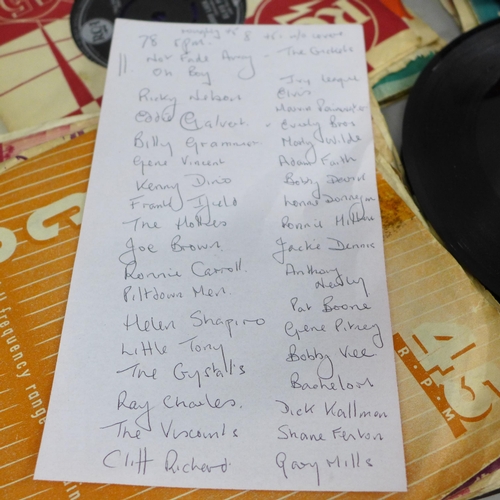 78 rpm.
Not Fade Away - The Crickets
Oh Boy
Ricky Nelson
Eddie Calvert.
Billy Grammer
Gene Vincent
Kenny Dino
Frank Ifield
The Hollies
Joe Brown.
Ronnie Carroll.
Piltdown Men.
Helen Shapiro
Little Tony
The Crystal's
Ray Charles.
The Viscounts
Cliff Richard
Elvis
Everly Bros
Marty Wilde
Adam Faith
Bobby Darin
Lonnie Donnegan
Ronnie Hilton
Jackie Dennis
Anthony
Newley
Pat Boone
Gene Pitney
Bobby Vee
Bachelors
Dick Kallman
Shane Fenton
Gary Mills
frequency range
45
R.P.M